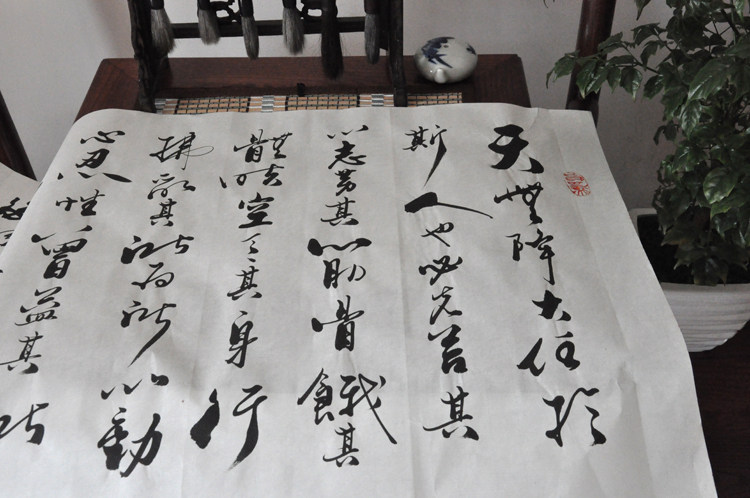 天將降大任於
斯人也必先苦其
心志勞其筋骨餓其
體膚空乏其身行
拂亂其所為所以動
心忍性曾益其所